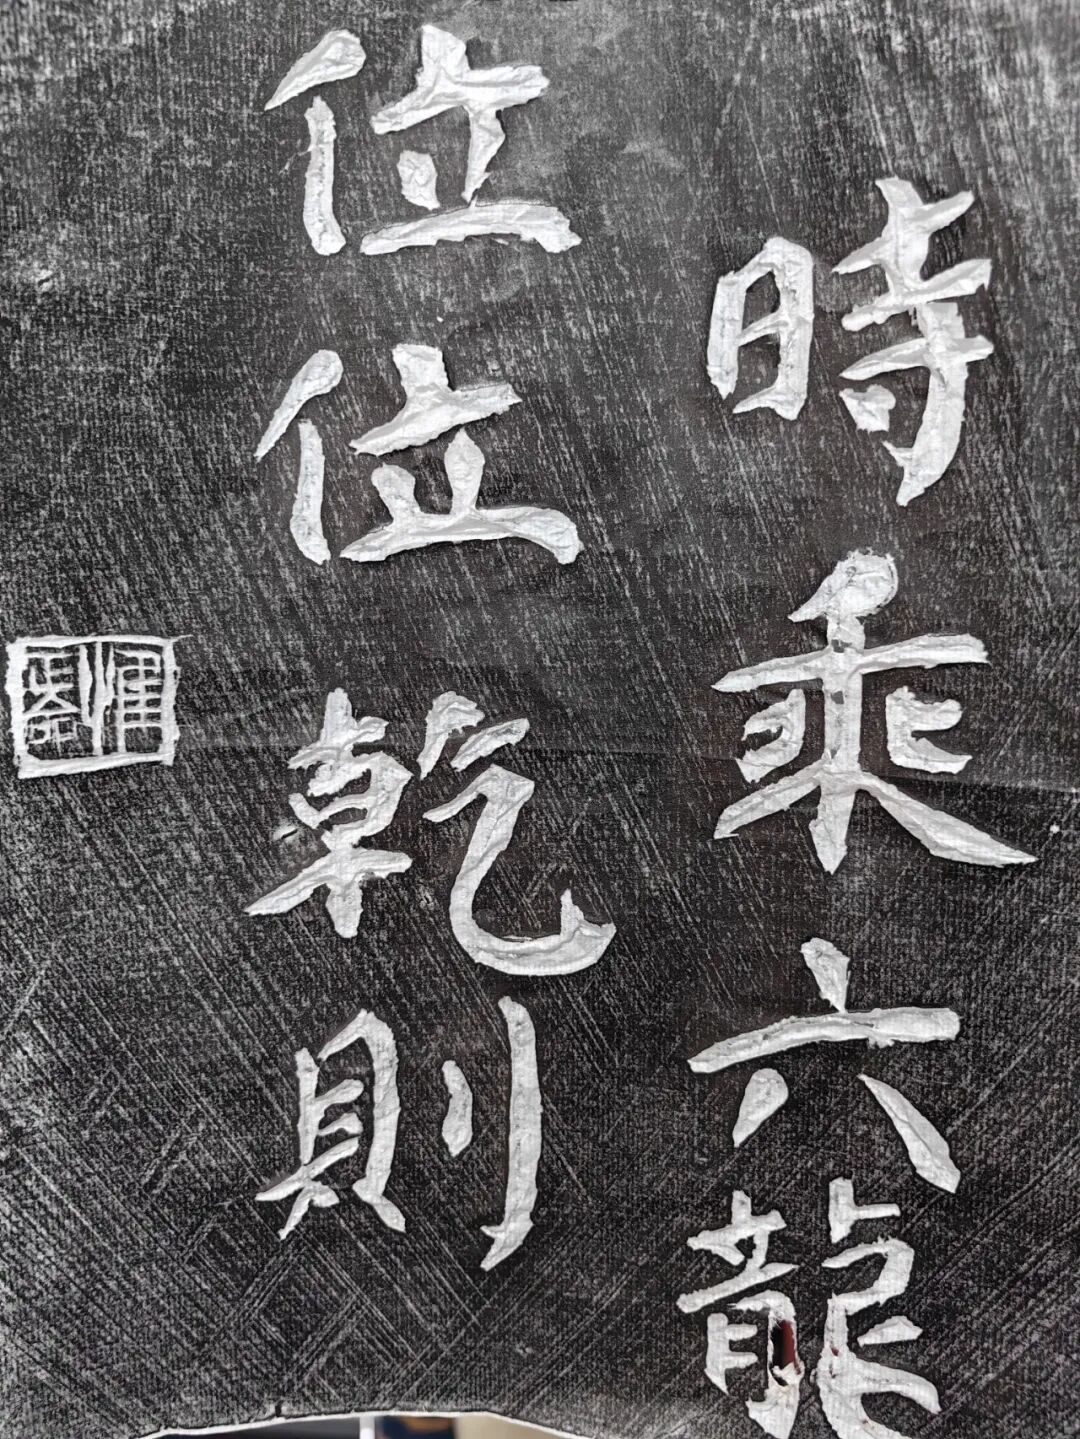 時乘六龍
位位乾則